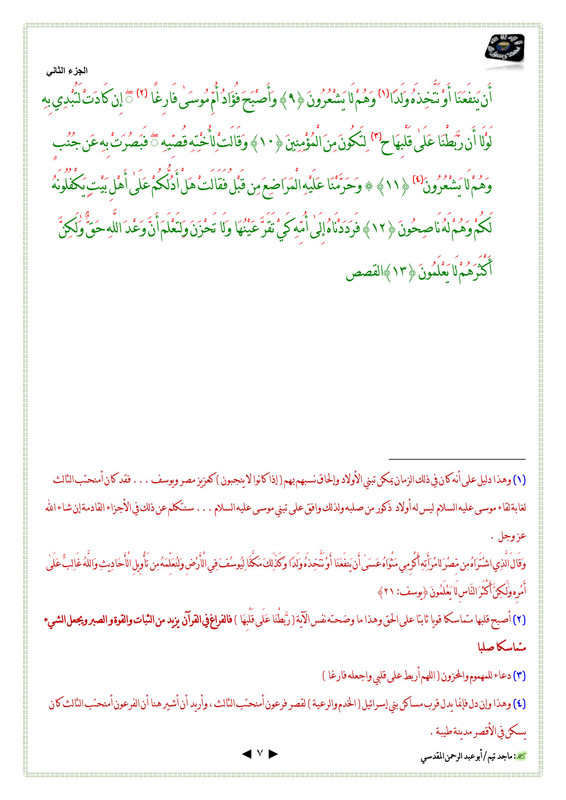 الجزء الثاني
أَن يَنفَعَنَا أَوْ نَتَّخِذَهُ وَلَدًا(١) وَهُمْ لَا يَشْعُرُونَ ﴿٩﴾ وَأَصْبَحَ فُؤَادُ أُمِّ مُوسَىٰ فَارِغًا (٢) ۖ إِن كَادَتْ لَتُبْدِي بِهِ
لَوْلَا أَن رَّبَطْنَا عَلَىٰ قَلْبِهَا ح(٣) لِتَكُونَ مِنَ الْمُؤْمِنِينَ ﴿١٠﴾ وَقَالَتْ لِأُخْتِهِ قُصِّيهِ ۖ فَبَصُرَتْ بِهِ عَن جُنُبٍ
وَهُمْ لَا يَشْعُرُونَ(٤) ﴿١١﴾ ۞ وَحَرَّمْنَا عَلَيْهِ الْمَرَاضِعَ مِن قَبْلُ فَقَالَتْ هَلْ أَدُلُّكُمْ عَلَىٰ أَهْلِ بَيْتٍ يَكْفُلُونَهُ
لَكُمْ وَهُمْ لَهُ نَاصِحُونَ ﴿١٢﴾ فَرَدَدْنَاهُ إِلَىٰ أُمِّهِ كَيْ تَقَرَّ عَيْنُهَا وَلَا تَحْزَنَ وَلِتَعْلَمَ أَنَّ وَعْدَ اللَّهِ حَقٌّ وَلَٰكِنَّ
أَكْثَرَهُمْ لَا يَعْلَمُونَ ﴿١٣﴾القصص
(١) وهذا دليل على أنه كان في ذلك الزمان يمكن تبني الأولاد وإلحاق نسبهم بهم ( إذا كانوا لا ينجبون ) كعزيز مصر ويوسف ... فقد كان أمنحتب الثالث
لغاية لقاء موسى عليه السلام ليس له أولاد ذكور من صلبه ولذلك وافق على تبني موسى عليه السلام ... سنتكلم عن ذلك في الأجزاء القادمة إن شاء الله
عز وجل .
وَقَالَ الَّذِي اشْتَرَاهُ مِن مِّصْرَ لِامْرَأَتِهِ أَكْرِمِي مَثْوَاهُ عَسَىٰ أَن يَنفَعَنَا أَوْ نَتَّخِذَهُ وَلَدًا وَكَذَٰلِكَ مَكَّنَّا لِيُوسُفَ فِي الْأَرْضِ وَلِنُعَلِّمَهُ مِن تَأْوِيلِ الْأَحَادِيثِ وَاللَّهُ غَالِبٌ عَلَىٰ
أَمْرِهِ وَلَٰكِنَّ أَكْثَرَ النَّاسِ لَا يَعْلَمُونَ ﴿يوسف: ٢١﴾
(٢) أصبح قلبها متماسكا قويا ثابتا على الحق وهذا ما وضحته نفس الآية ( رَّبَطْنَا عَلَىٰ قَلْبِهَا ) فالفراغ في القرآن يزيد من الثبات والقوة والصبر ويجعل الشيء
متماسكا صلبا
(٣) دعاء للمهموم والمحزون ( اللهم أربط على قلبي واجعله فارغا )
(٤) وهذا وإن دل فإنما يدل قرب مساكن بني إسرائيل ( الخدم والرعية ) لقصر فرعون أمنحتب الثالث ، وأريد أن أشير هنا أن الفرعون أمنحتب الثالث كان
يسكن في الأقصر مدينة طيبة .
: ماجد تيم / أبو عبد الرحمن المقدسي
◄ ٧ ►